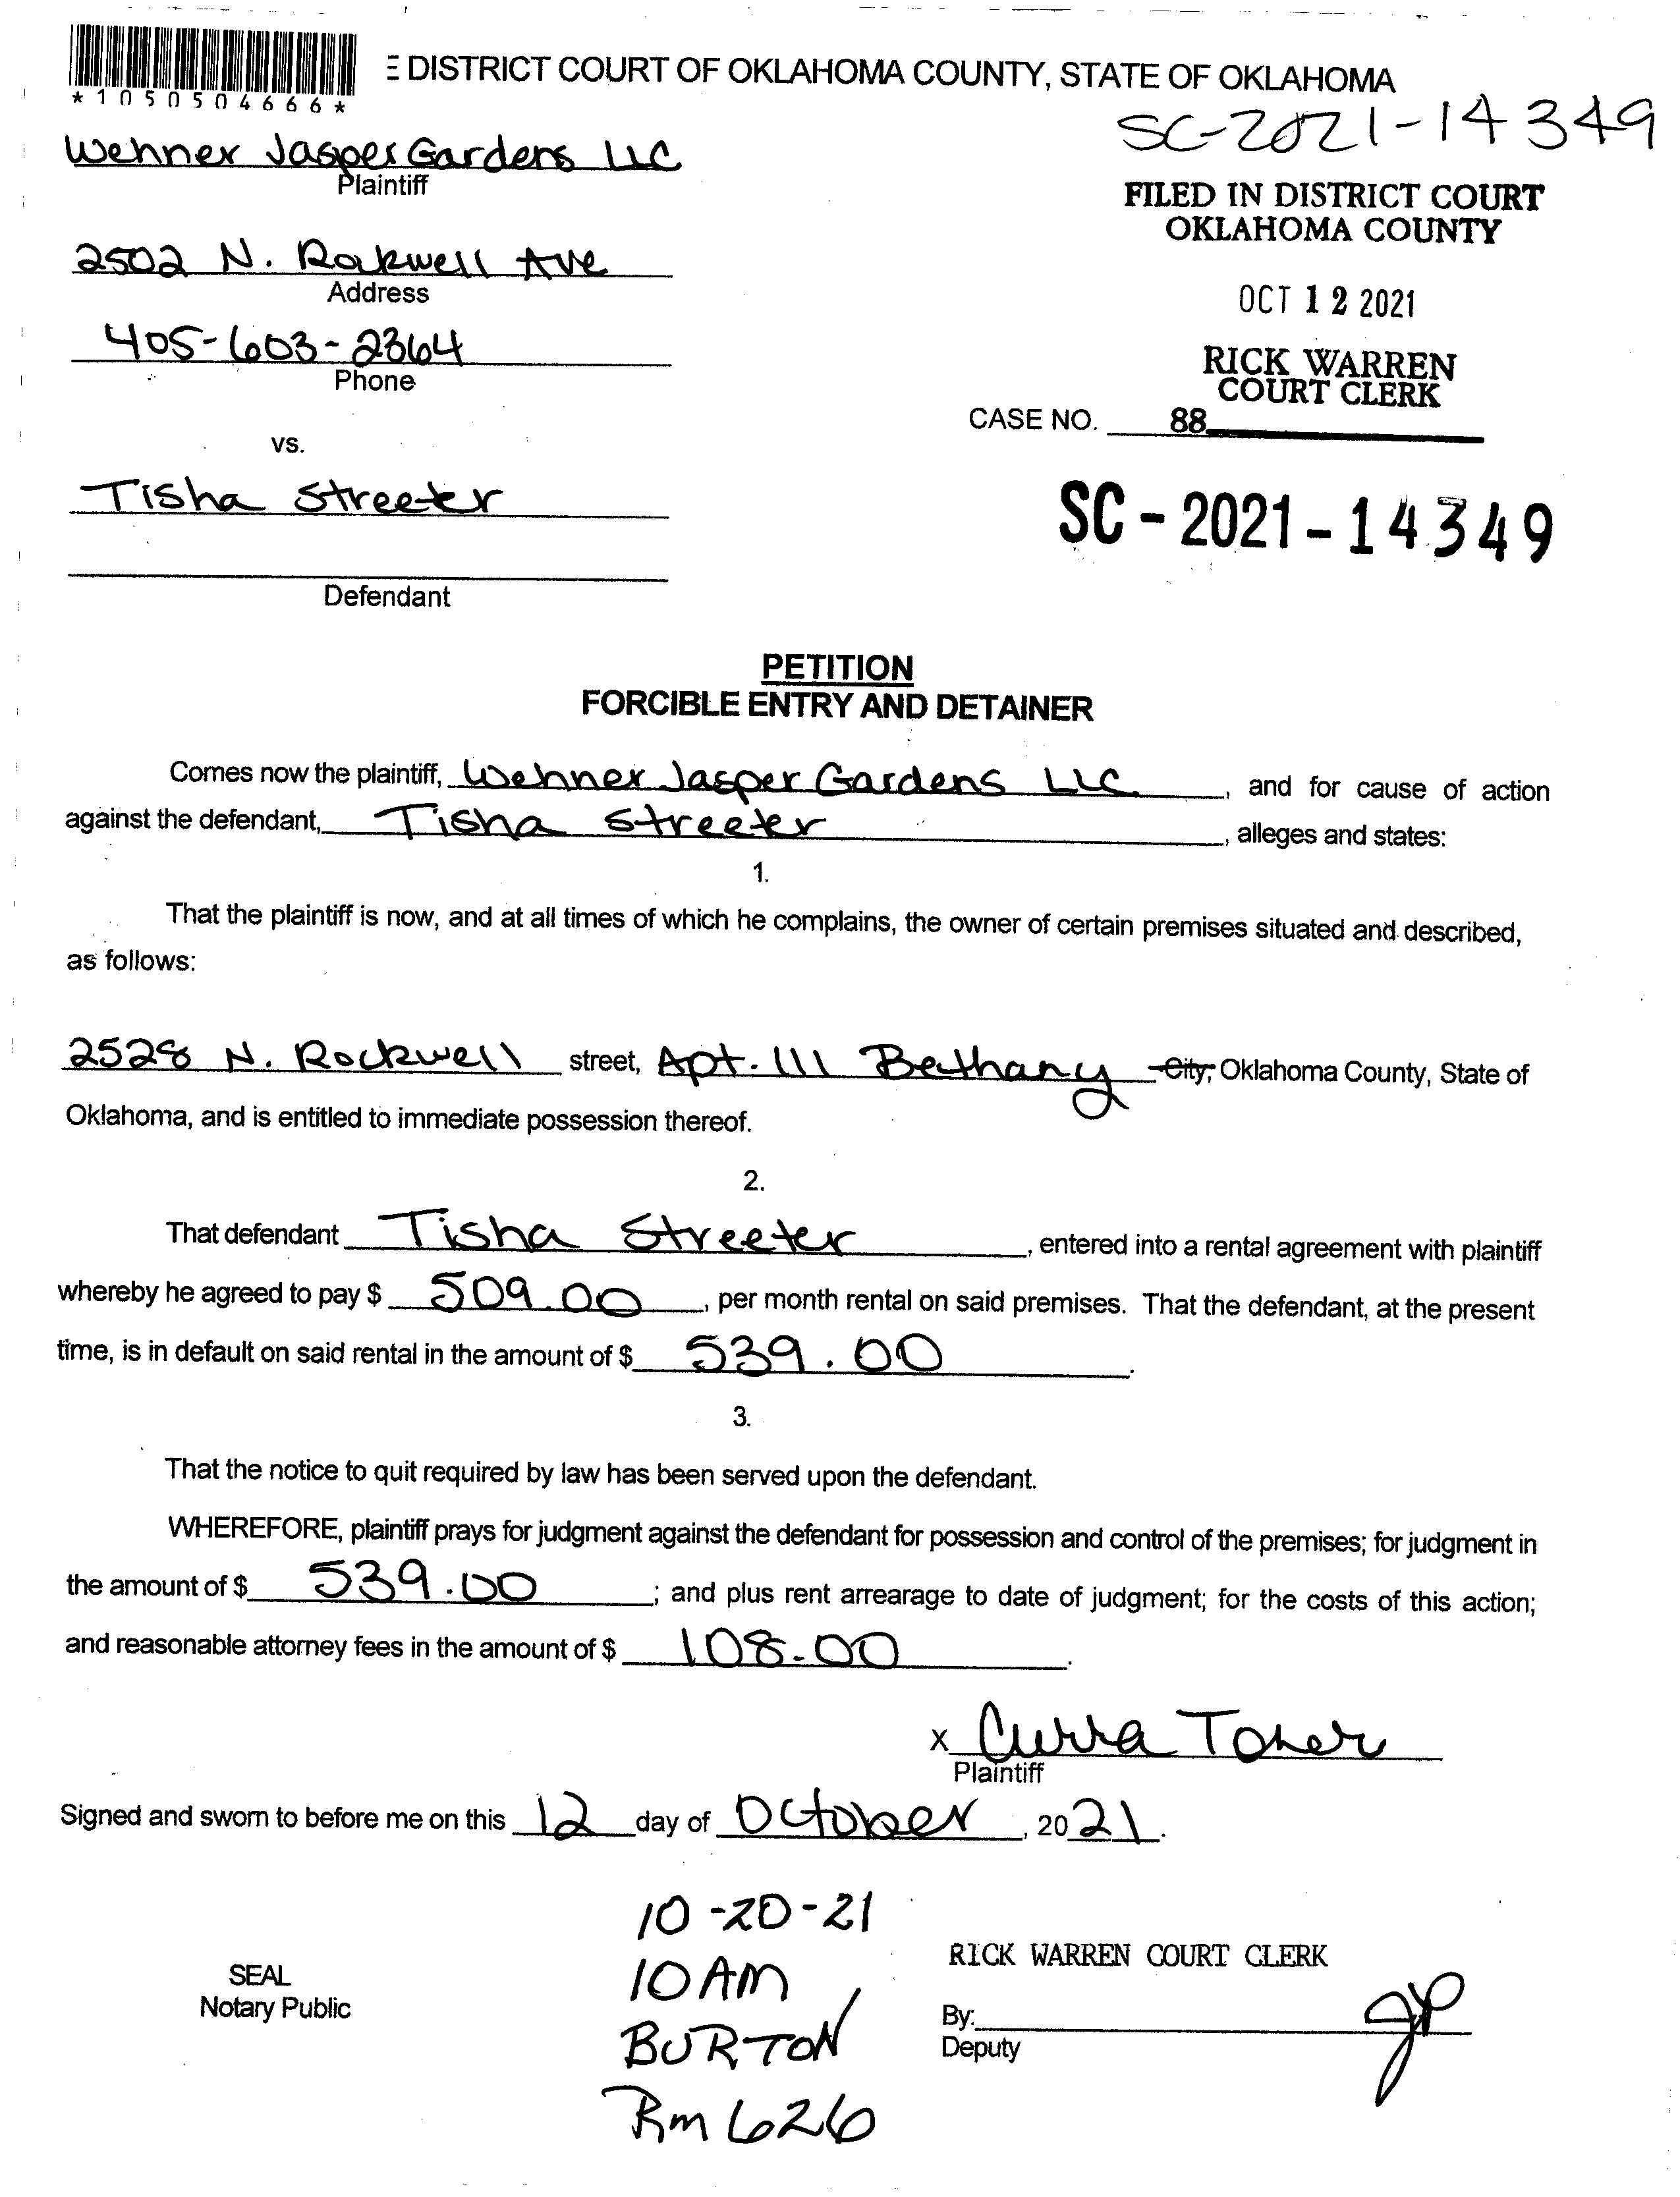 DISTRICT COURT OF OKLAHOMA COUNTY, STATE OF OKLAHOMA
*1050504666*
SC-2021-14349
Wehner Jasper Gardens LLC
Plaintiff
FILED IN DISTRICT COURT
OKLAHOMA COUNTY
2502 N. Rockwell Ave
Address
OCT 12 2021
405-603-2364
Phone
RICK WARREN
COURT CLERK
CASE NO. 88
vs.
Tisha Streeter
SC-2021-14349
Defendant
PETITION
FORCIBLE ENTRY AND DETAINER
Comes now the plaintiff, Wehner Jasper Gardens LLC, and for cause of action
against the defendant, Tisha Streeter, alleges and states:
1.
That the plaintiff is now, and at all times of which he complains, the owner of certain premises situated and described,
as follows:
2528 N. Rockwell street, Apt. 111 Bethany City, Oklahoma County, State of
Oklahoma, and is entitled to immediate possession thereof.
2.
That defendant Tisha Streeter, entered into a rental agreement with plaintiff
whereby he agreed to pay $ 509.00, per month rental on said premises. That the defendant, at the present
time, is in default on said rental in the amount of $ 539.00.
3.
That the notice to quit required by law has been served upon the defendant.
WHEREFORE, plaintiff prays for judgment against the defendant for possession and control of the premises; for judgment in
the amount of $ 539.00; and plus rent arrearage to date of judgment; for the costs of this action;
and reasonable attorney fees in the amount of $ 108.00.
X Toner
Plaintiff
Signed and sworn to before me on this 12 day of October, 2021.
10-20-21
10 AM
BURTON
Rm 626
SEAL
Notary Public
RICK WARREN COURT CLERK
By:
Deputy